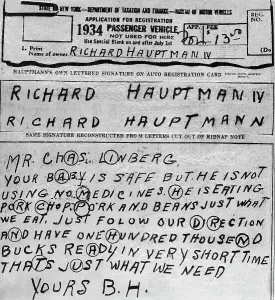 STATE OF NEW YORK — DEPARTMENT OF TAXATION AND FINANCE — BUREAU OF MOTOR VEHICLES
APPLICATION FOR REGISTRATION
1934 PASSENGER VEHICLE
NOT USED FOR HIRE
Use Special Blank on and after July 1st
REG. NO.
FEE
$
1. Print
Name of owner RICHARD HAUPTMAN IV
HAUPTMANN'S OWN LETTERED SIGNATURE ON AUTO REGISTRATION CARD
RICHARD HAUPTMAN IV
RICHARD HAUPTMANN
SAME SIGNATURE RECONSTRUCTED FROM LETTERS CUT OUT OF KIDNAP NOTE
MR. CHAS. LINBERG,
YOUR BABY IS SAFE BUT HE IS NOT
USING NO MEDICINES. HE IS EATING
PORK CHOP, PORK AND BEANS JUST WHAT
WE EAT. JUST FOLOW OUR DIRECTION
AND HAVE ONE HUNDRED THOUSEND
BUCKS READY IN VERY SHORT TIME
THATS JUST WHAT WE NEED
YOURS B.H.